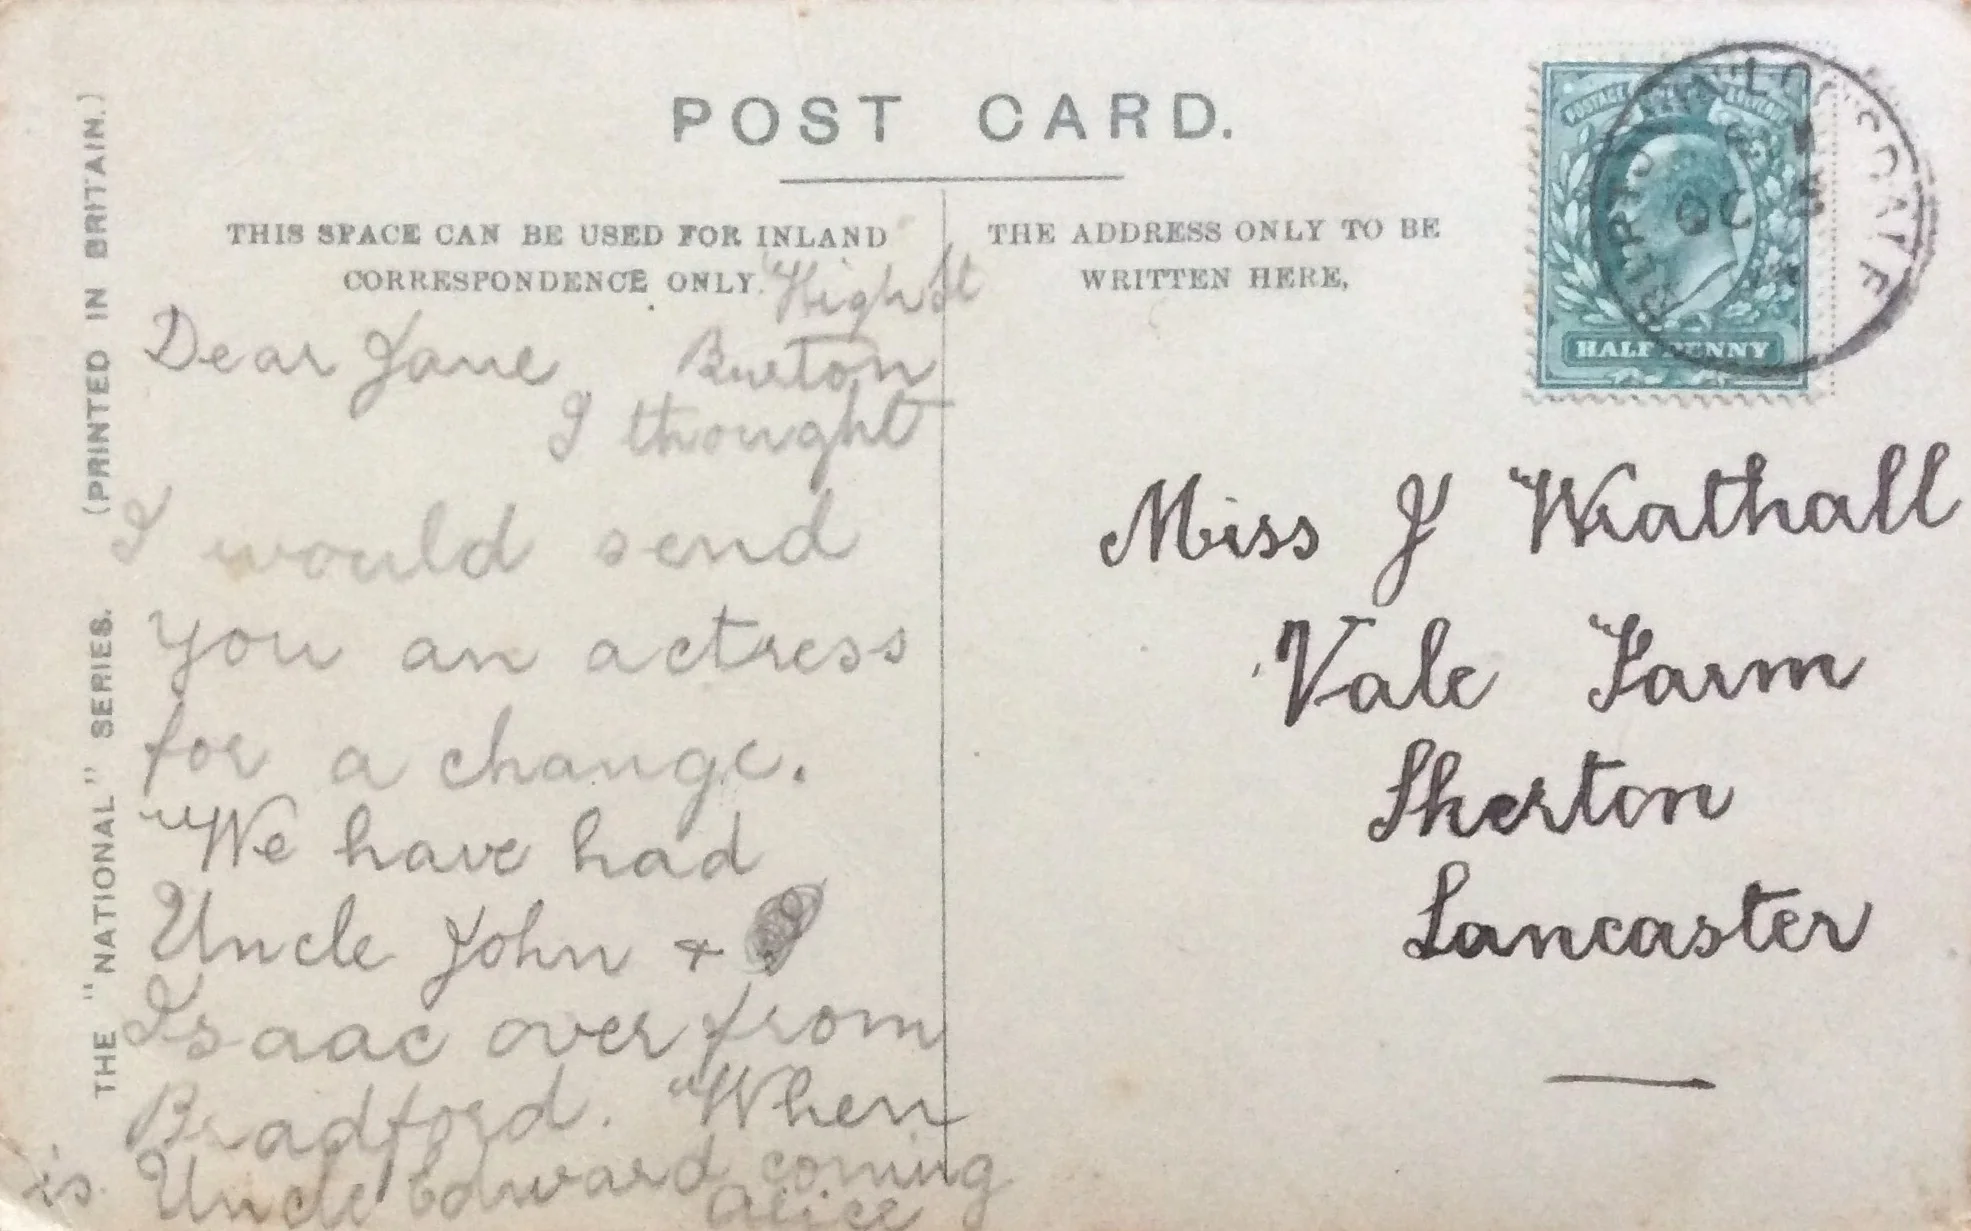 POST CARD.
THIS SPACE CAN BE USED FOR INLAND
CORRESPONDENCE ONLY.
THE ADDRESS ONLY TO BE
WRITTEN HERE,
(PRINTED IN BRITAIN.)
THE "NATIONAL" SERIES.
High St
Burton
Dear Jane
I thought
I would send
you an actress
for a change.
We have had
Uncle John +
Isaac over from
Bradford. When
is Uncle Edward coming
Alice
POSTAGE
HALF PENNY
OC
Miss J Wathall
Vale Farm
Skerton
Lancaster